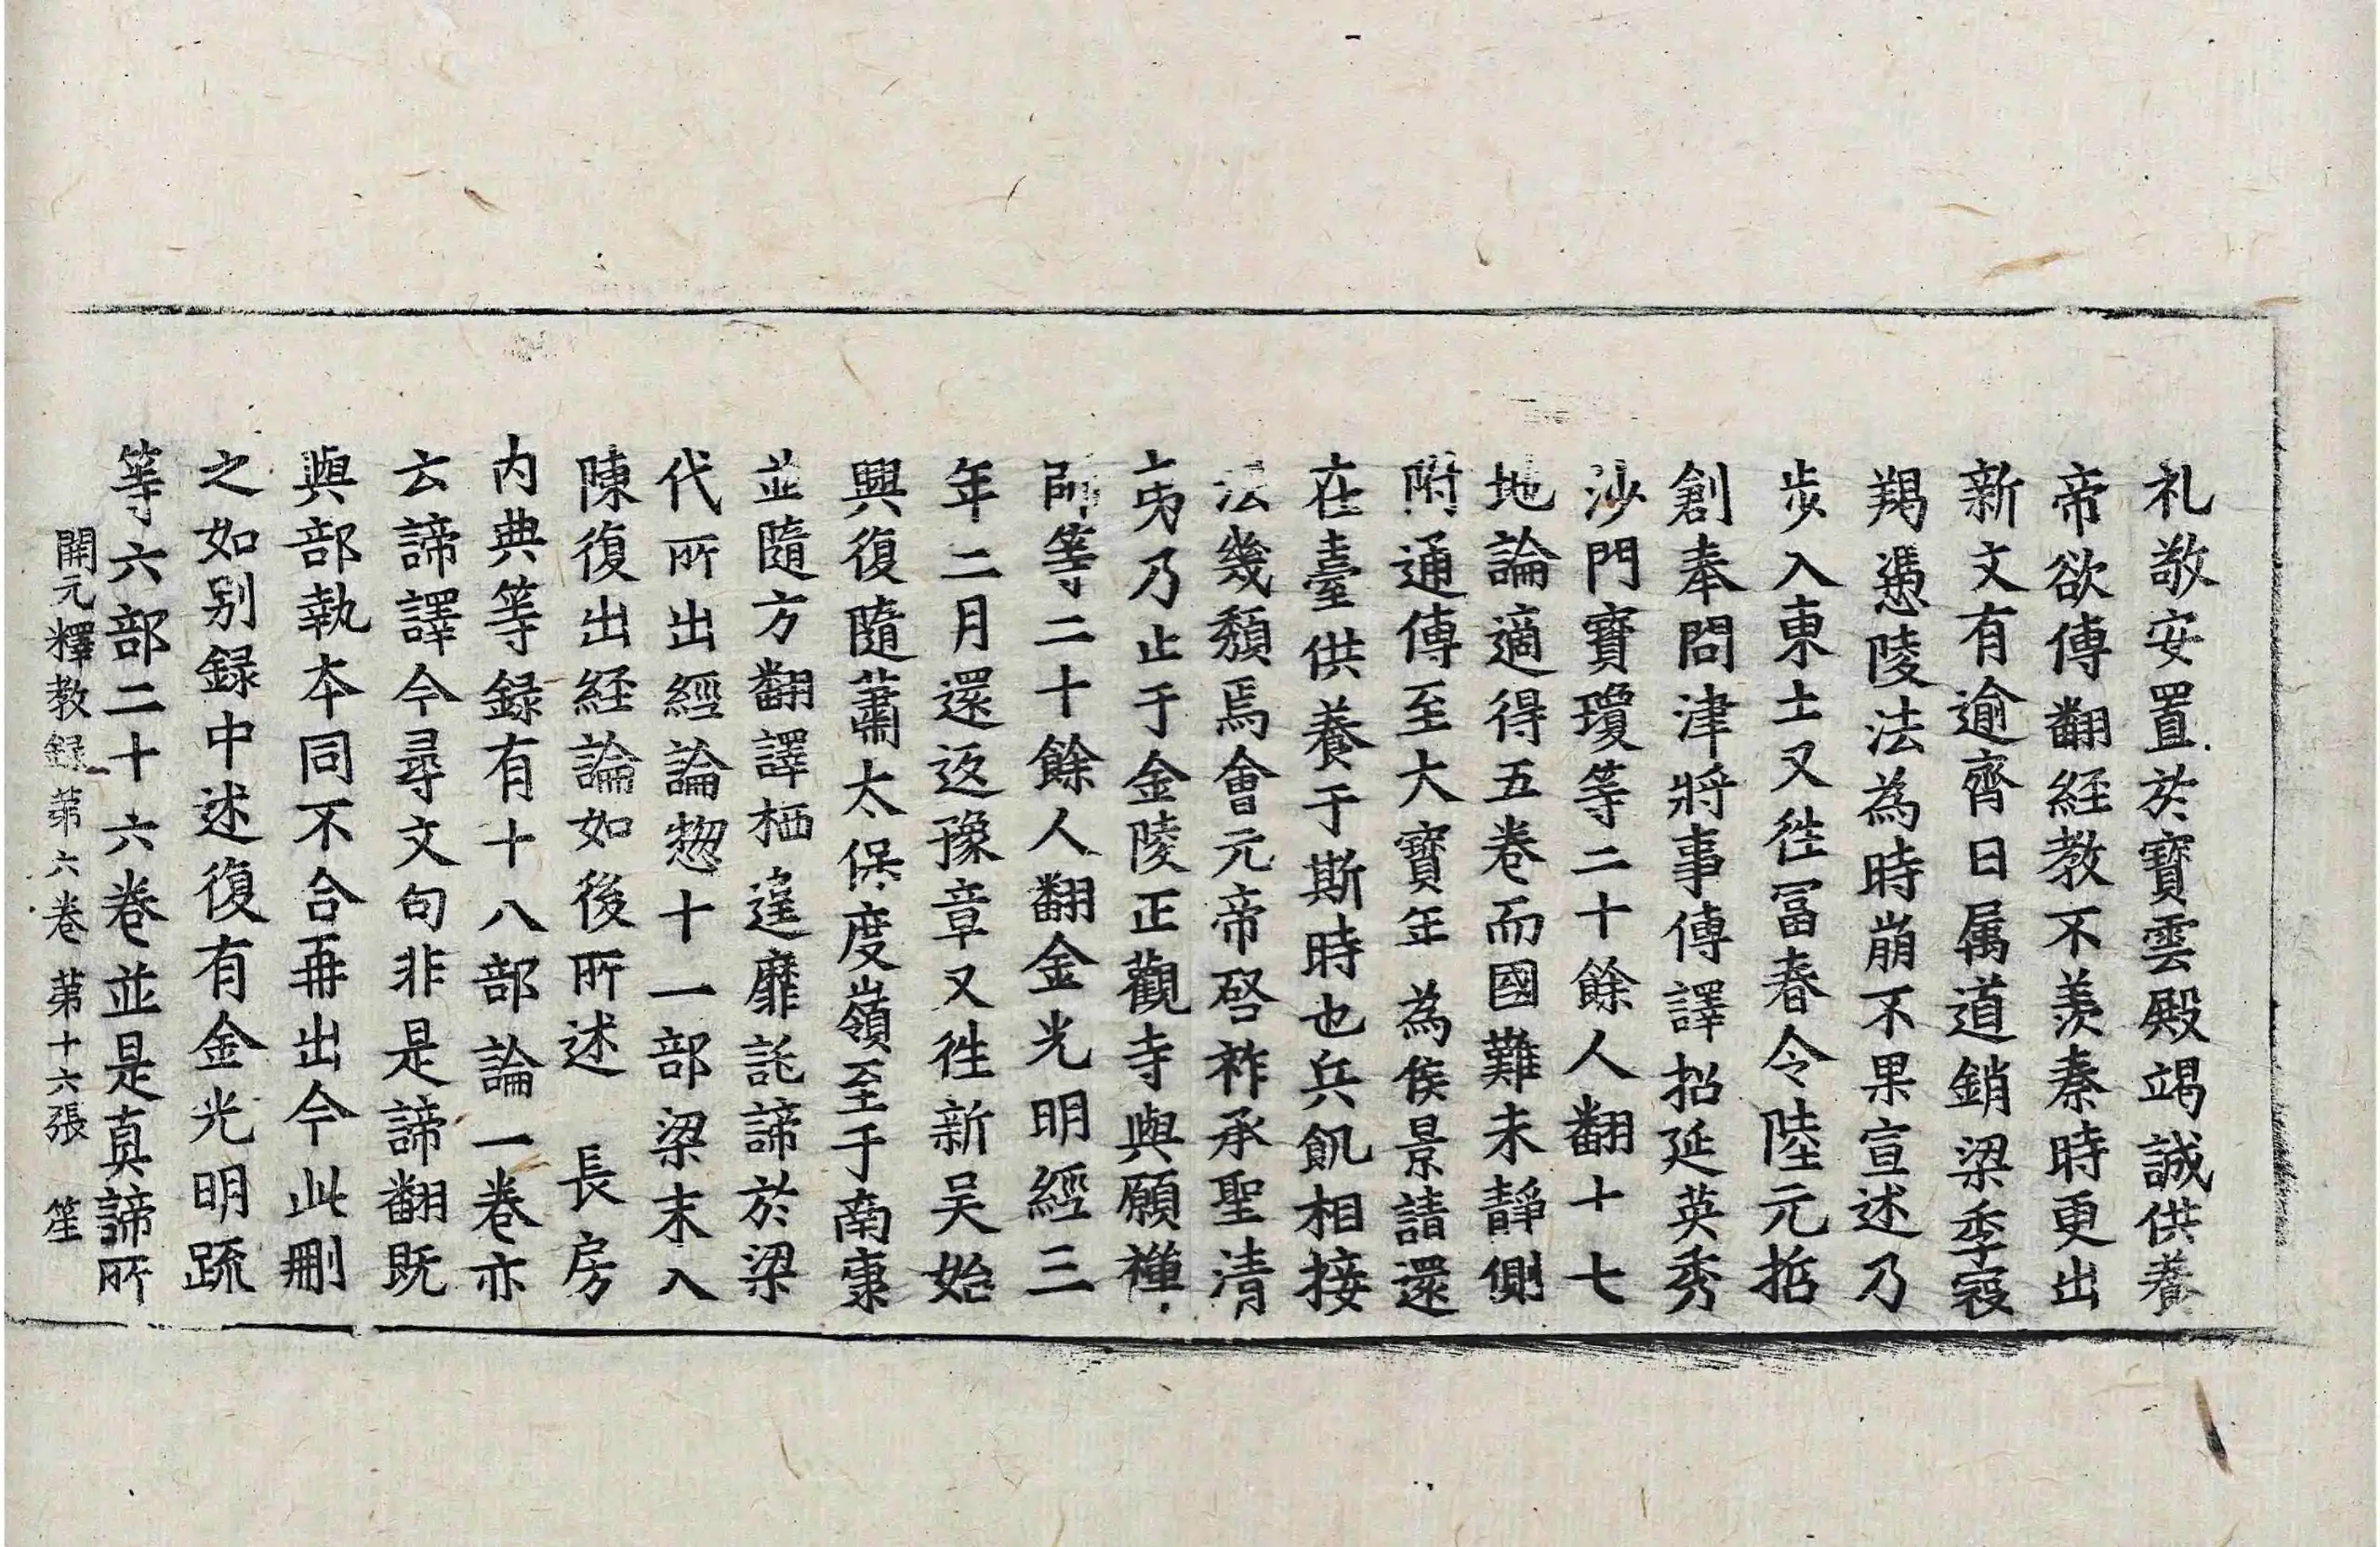 礼敬安置於寶雲殿竭誠供養
帝欲傳翻経教不羡秦時更出
新文有逾齊日属道銷梁季寇
羯憑陵法為時崩不果宣述乃
步入東土又徃冨春令陸元哲
創奉問津將事傳譯招延英秀
沙門寶瓊等二十餘人翻十七
地論適得五卷而國難未靜側
附通傳至大寳年為侯景請還
在臺供養于斯時也兵飢相接
法幾頹焉會元帝啓祚承聖清
夷乃止于金陵正觀寺與願禪
師等二十餘人翻金光明經三
年二月還返豫章又徃新吴始
興復隨蕭太保度嶺至于南康
並隨方翻譯栖遑靡託諦於梁
代所出經論惣十一部梁末入
陳復出経論如後所述 長房
内典等録有十八部論一卷亦
云諦譯今尋文句非是諦翻既
與部執夲同不合再出今此刪
之如别録中述復有金光明䟽
等六部二十六卷並是真諦所
開元釋教録第六卷 第十六張 笙